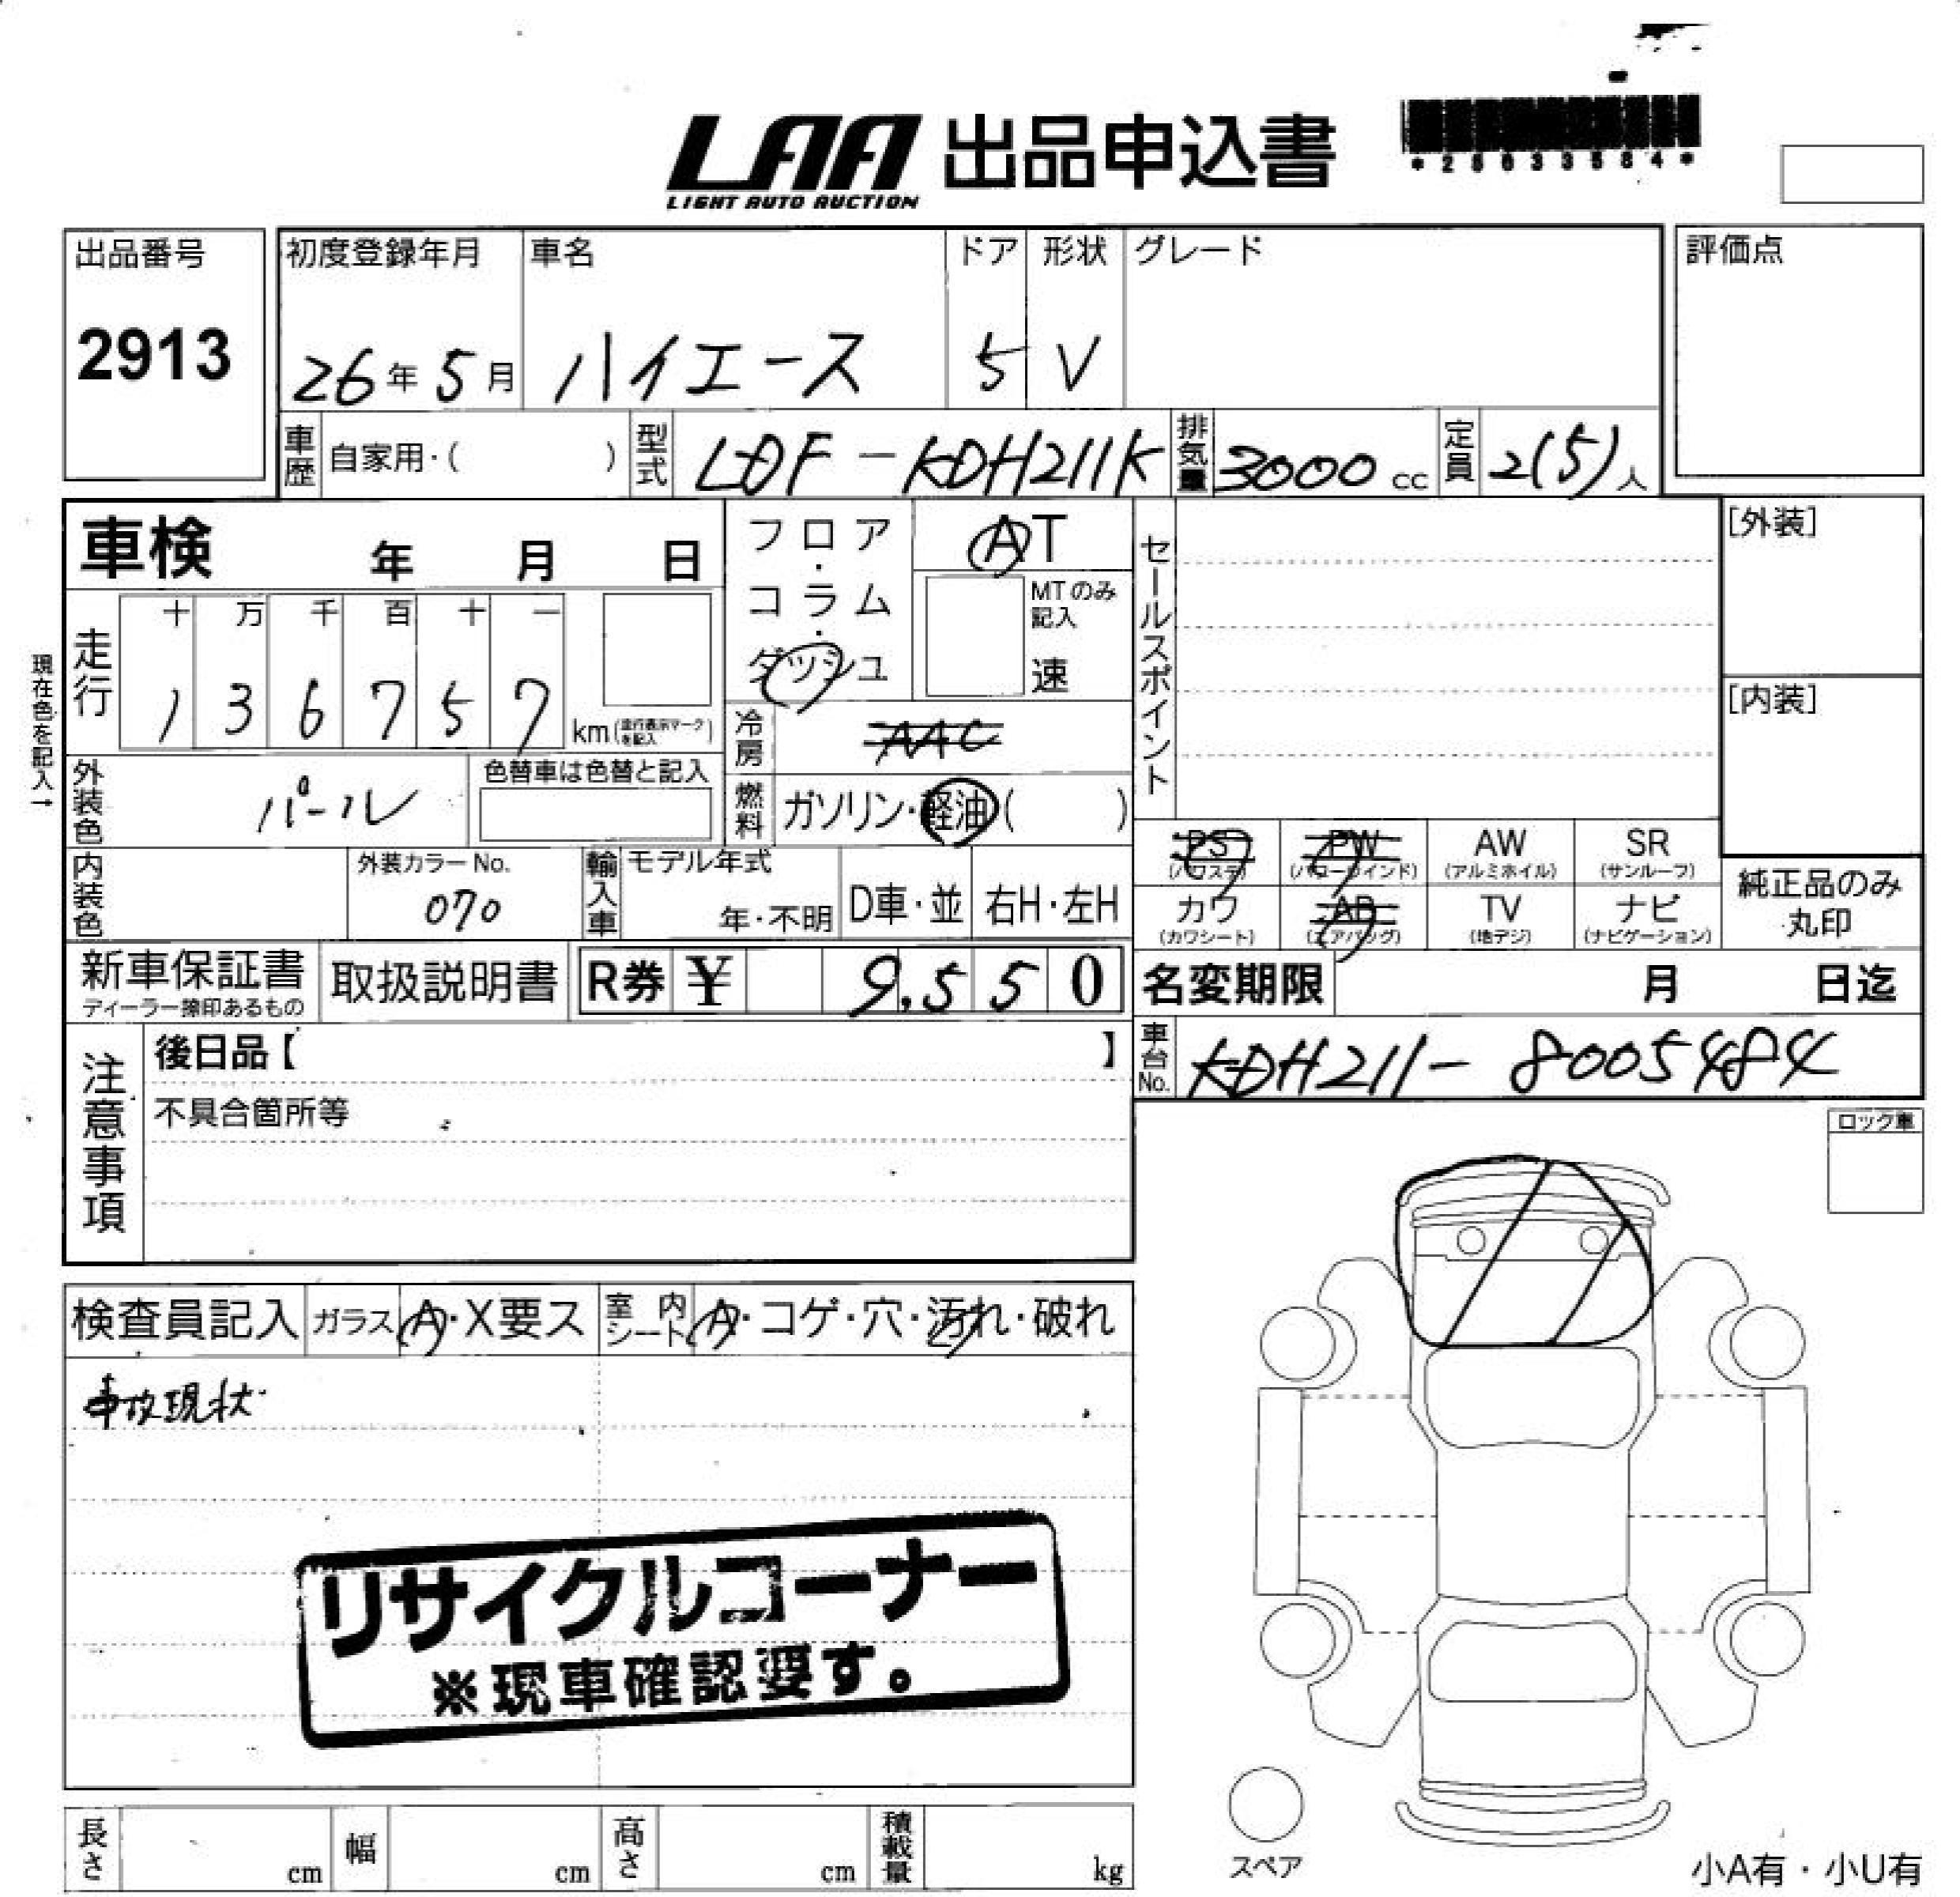 LAA 出品申込書
LIGHT AUTO AUCTION
出品番号
2913
初度登録年月
26年5月
車名
ハイエース
ドア
5
形状
V
グレード
評価点
車歴 自家用・( )
型式 LDF-KDH211K
排気量 3000 cc
定員 2(5)人
車検 年 月 日
フロア・コラム・ダッシュ
AT
MTのみ記入
速
セールスポイント
[外装]
[内装]
現在色を記入→
走行
十 万 千 百 十 一
1 3 6 7 5 7
km(走行表示マークを記入)
冷房 AAC
外装色 パール
色替車は色替と記入
燃料 ガソリン・軽油( )
内装色
外装カラーNo.
070
輸入車
モデル年式
年・不明
D車・並
右H・左H
PS
(パワステ)
PW
(パワーウィンド)
AW
(アルミホイル)
SR
(サンルーフ)
カワ
(カワシート)
AB
(エアバッグ)
TV
(地デジ)
ナビ
(ナビゲーション)
純正品のみ
丸印
新車保証書
ディーラー捺印あるもの
取扱説明書
R券 ¥ 9,550
名変期限 月 日迄
車台No. KDH211-8005484
注意事項
後日品【 】
不具合箇所等
ロック車
検査員記入
ガラス A・X要ス
室内シート A・コゲ・穴・汚れ・破れ
事故現状
リサイクルコーナー
※現車確認要す。
長さ cm
幅 cm
高さ cm
積載量 kg
スペア
小A有・小U有